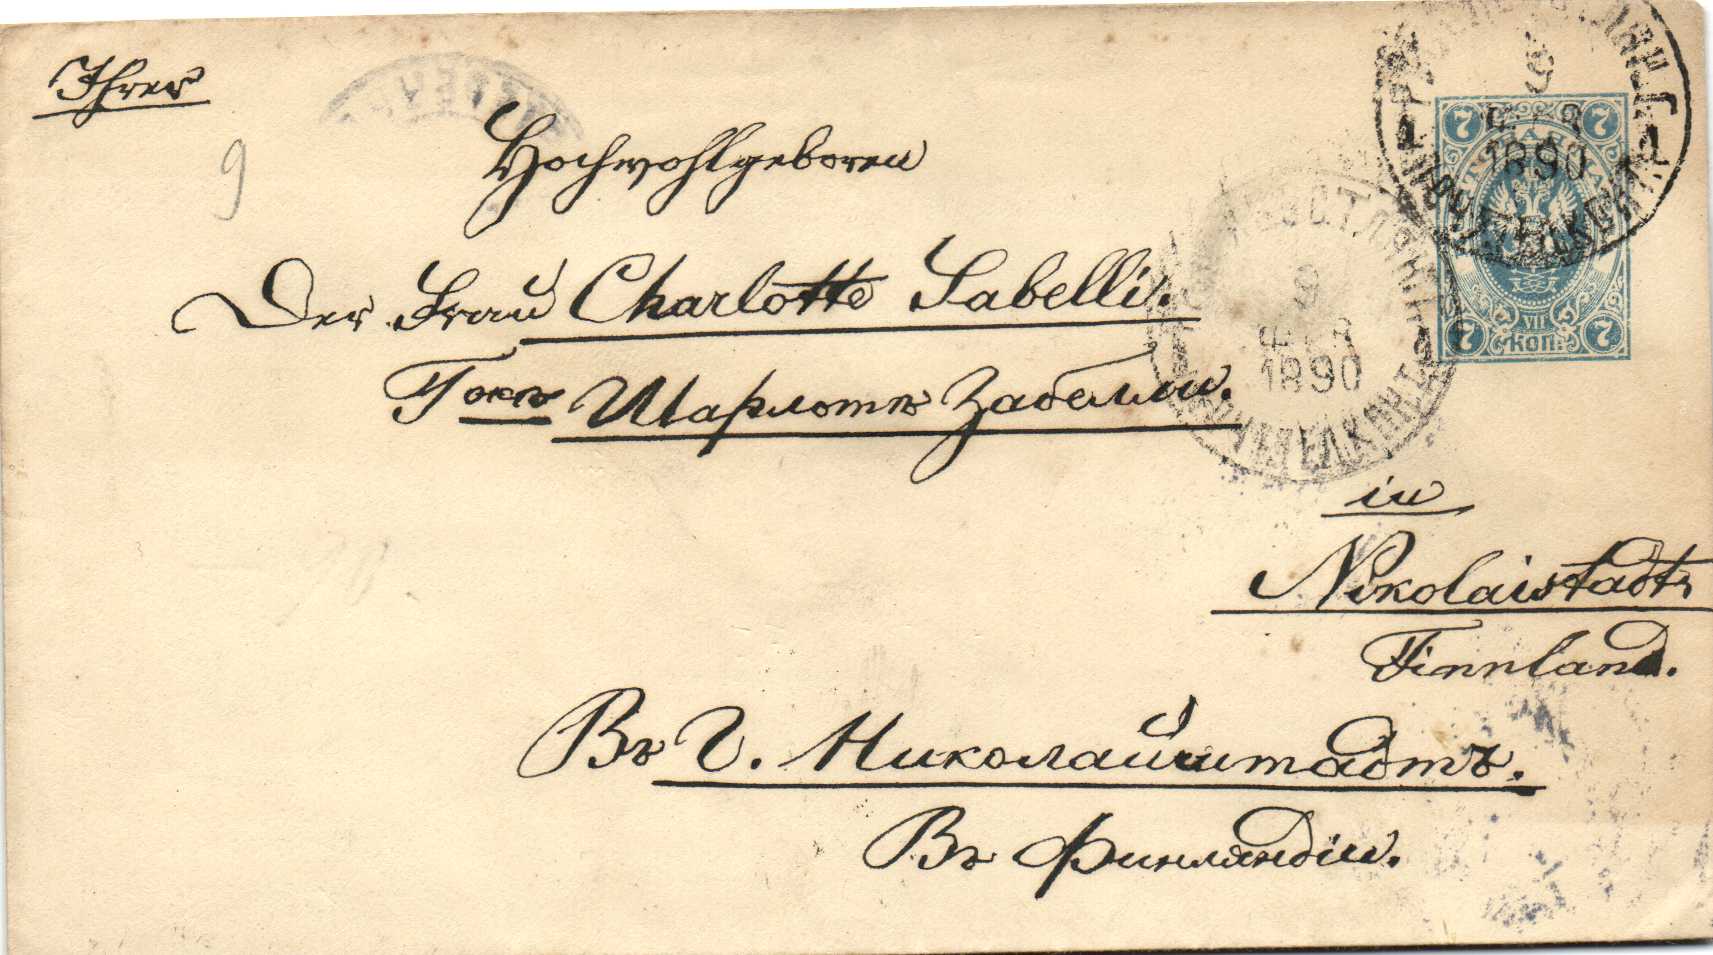 Ihrer
Hochwohlgeboren
Der Frau Charlotte Sabelli.
Г-жѣ Шарлоттѣ Забелли.
in
Nikolaistadt
Finnland.
Въ г. Николайштадтъ.
Въ Финляндіи.
9
7 7
9
ФЕВ
1890
VII
КОП.
7 7
9
ФЕВ
1890